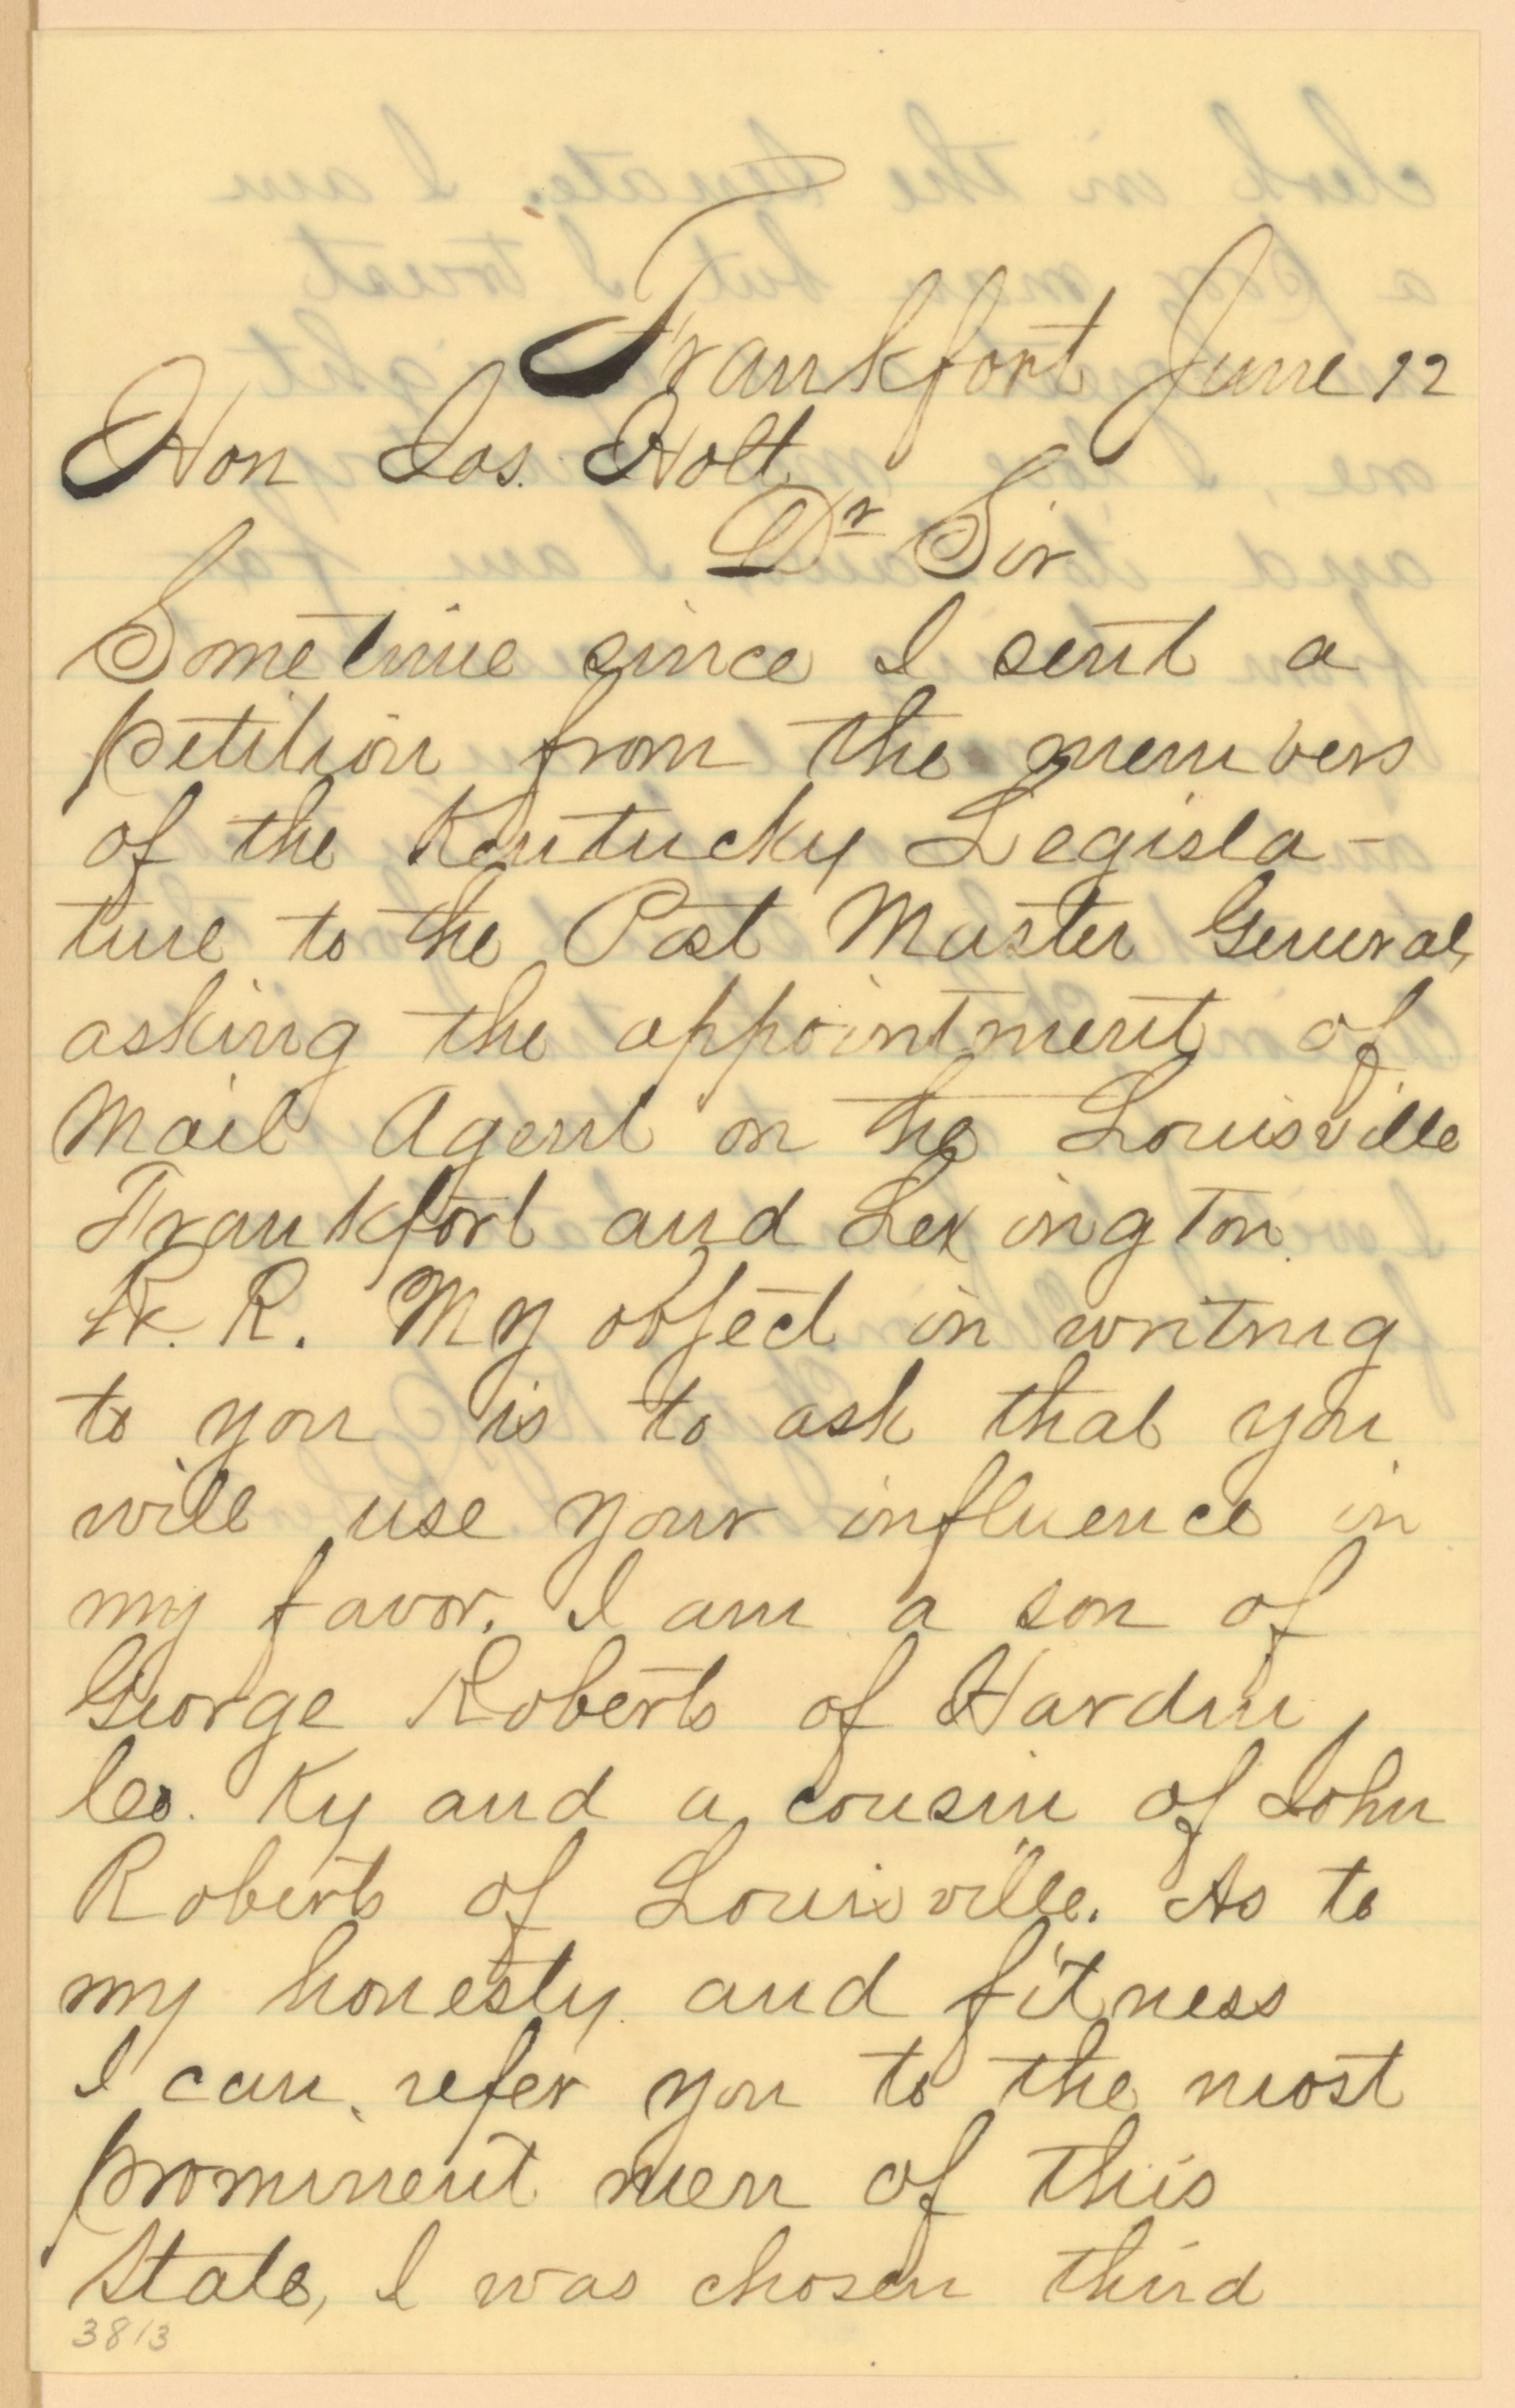 Frankfort June 12
Hon Jos. Holt.
Dr Sir
Sometime since I sent a
petition from the members
of the Kentucky Legisla-
ture to the Post Master General,
asking the appointment of
Mail Agent on the Louisville
Frankfort and Lexington
R. R. My object in writing
to you is to ask that you
will use your influence in
my favor. I am a son of
George Roberts of Hardin
Co. Ky and a cousin of John
Roberts of Louisville. As to
my honesty and fitness
I can refer you to the most
prominent men of this
State, I was chosen third
3813